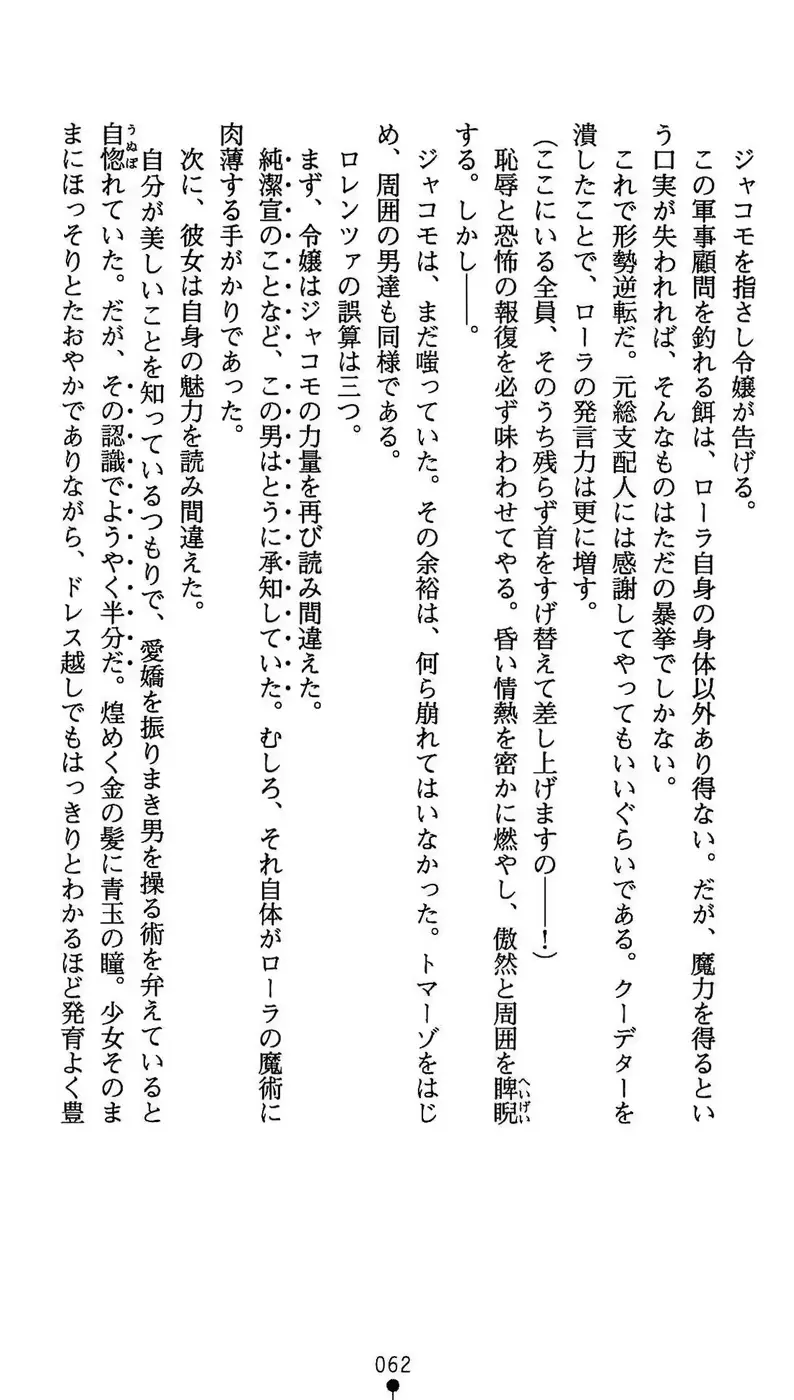 ジャコモを指さし令嬢が告げる。
この軍事顧問を釣れる餌は、ローラ自身の身体以外あり得ない。だが、魔力を得るとい
う口実が失われれば、そんなものはただの暴挙でしかない。
これで形勢逆転だ。元総支配人には感謝してやってもいいぐらいである。クーデターを
潰したことで、ローラの発言力は更に増す。
(ここにいる全員、そのうち残らず首をすげ替えて差し上げますの――!)
恥辱と恐怖の報復を必ず味わわせてやる。昏い情熱を密かに燃やし、傲然と周囲を睥睨
へいげい
する。しかし――。
ジャコモは、まだ嗤っていた。その余裕は、何ら崩れてはいなかった。トマーゾをはじ
め、周囲の男達も同様である。
ロレンツァの誤算は三つ。
まず、令嬢はジャコモの力量を再び読み間違えた。
純潔宣のことなど、この男はとうに承知していた。むしろ、それ自体がローラの魔術に
肉薄する手がかりであった。
次に、彼女は自身の魅力を読み間違えた。
自分が美しいことを知っているつもりで、愛嬌を振りまき男を操る術を弁えていると
自惚れていた。だが、その認識でようやく半分だ。煌めく金の髪に青玉の瞳。少女そのま
うぬぼ
まにほっそりとたおやかでありながら、ドレス越しでもはっきりとわかるほど発育よく豊
062